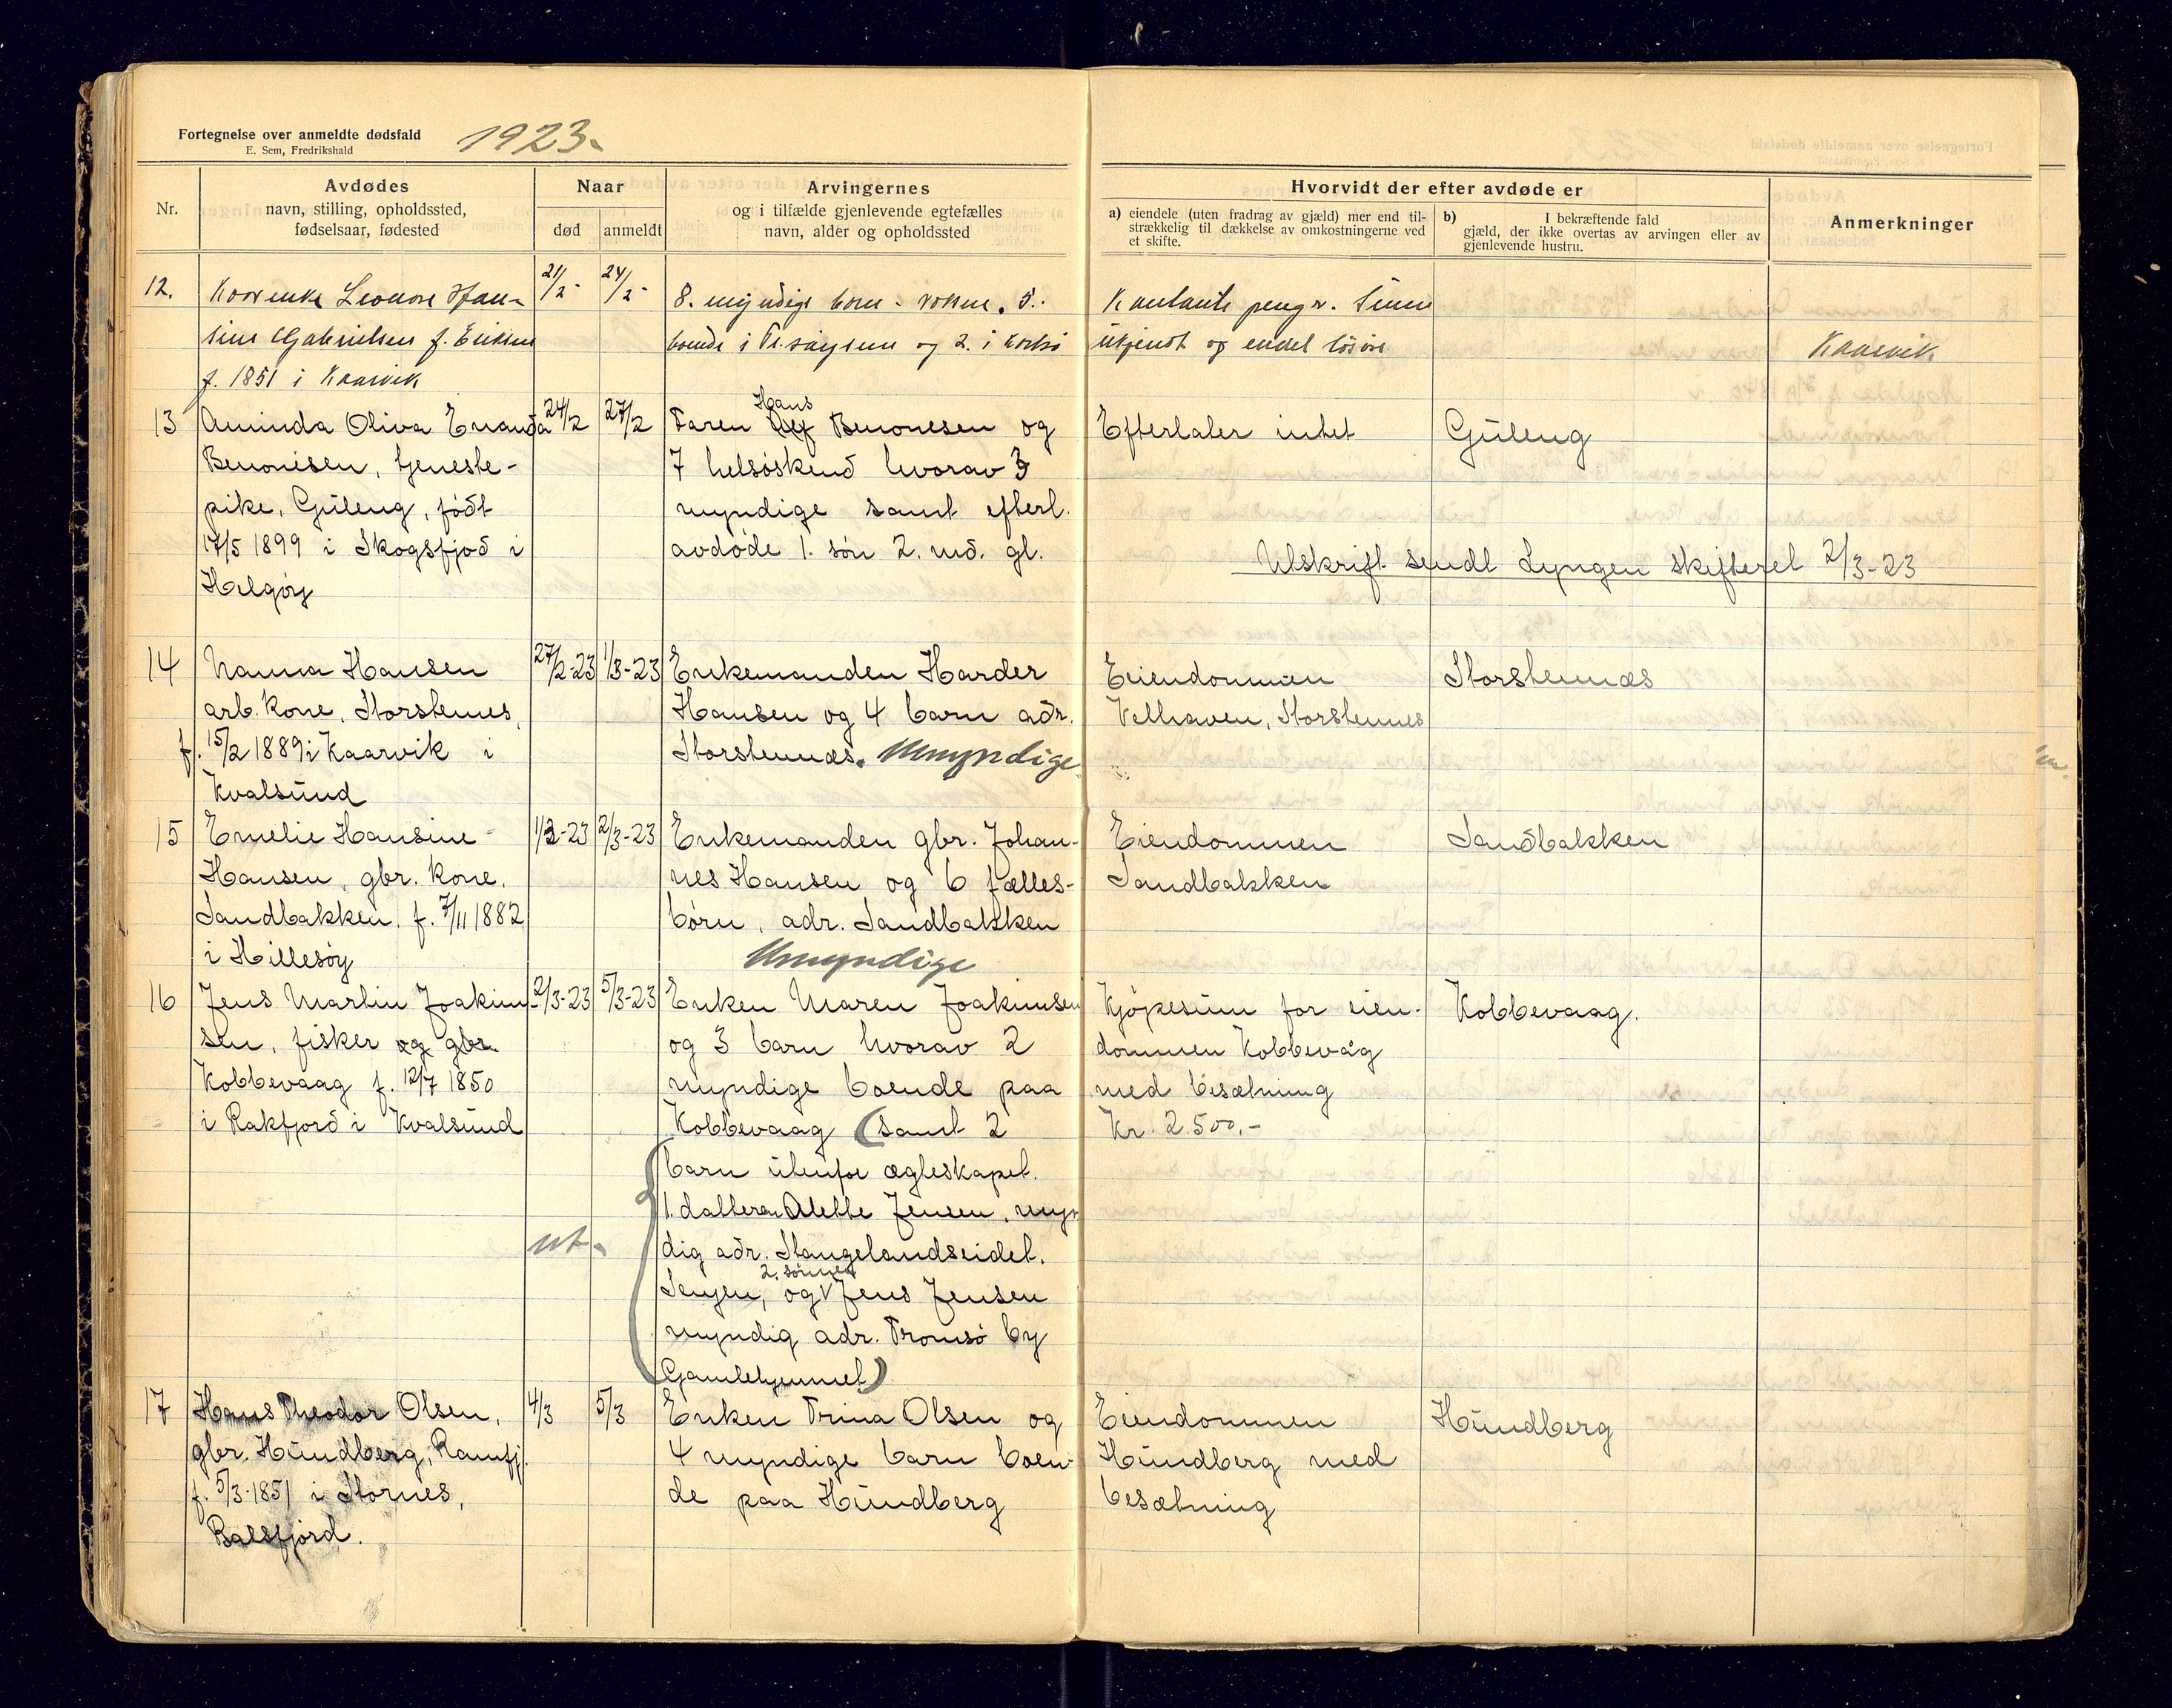 Fortegnelse over anmeldte dødsfald
E. Sem, Fredrikshald
1923.
Nr.
Avdødes
navn, stilling, opholdssted,
fødselsaar, fødested
Naar
død
anmeldt
Arvingernes
og i tilfælde gjenlevende egtefælles
navn, alder og opholdssted
Hvorvidt der efter avdøde er
a) eiendele (uten fradrag av gjæld) mer end til-
strækkelig til dækkelse av omkostningerne ved
et skifte.
b) I bekræftende fald
gjæld, der ikke overtas av arvingen eller av
gjenlevende hustru.
Anmerkninger
12.
Leonore Han-
sine Gabrielsen f. Eriksen
f. 1851 i Kaarvik
21/2-
24/2-
8. myndige børn - voksne. 5.
boende i Tr.søysund og 2. i
Kontante penger. Sum
ukjendt og endel løsøre
Kaarvik
13
Aminda Oliva Enanda
Benonisen, tjeneste-
pike, Guleng, født
17/5 1899 i Skogsfjod i
Helgøy
24/2
27/2
Faren Hans Benonesen og
7 helsøskend hvorav 3
myndige samt efterl.
avdøde 1. søn 2. md. gl.
Efterlater intet
Guleng
Utskrift sendt Lyngen skifteret 2/3-23
14
Nanna Hansen
arb. kone, Storstennes,
f. 15/2 1889 i Kaarvik i
Kvalsund
27/2-23
1/3-23
Enkemanden Harder
Hansen og 4 barn adr.
Storstennæs. Umyndige
Eiendommen
Velhaven, Storstennes
Storstennæs
15
Emelie Hansine
Hansen, gbr. kone.
Sandbakken, f. 7/11 1882
i Hillesøy
1/3-23
2/3-23
Enkemanden gbr. Johan-
nes Hansen og 6 fælles-
børn, adr. Sandbakken
Umyndige
Eiendommen
Sandbakken
Sandbakken
16
Jens Martin Joakim-
sen, fisker og gbr.
Kobbevaag f. 12/7 1850
i Rakfjord i Kvalsund
2/3-23
5/3-23
Enken Maren Joakimsen
og 3 barn hvorav 2
myndige boende paa
Kobbevaag (samt 2
barn utenfor ægteskapet.
1. datteren Alette Jensen, myn
dig adr. Stangelandseidet.
Senjen, og 2. sønnen Jens Jensen
myndig adr. Tromsø by
Gamlehjemmet)
ut.
Kjøpesum for eien-
dommen Kobbevåg
med besætning
Kr. 2.500.-
Kobbevaag.
17
Hans Theodor Olsen,
gbr. Hundberg, Ramfj.
f. 5/3-1851 i Stornes,
Balsfjord.
4/3
5/3
Enken Trina Olsen og
4 myndige barn boen-
de paa Hundberg
Eiendommen
Hundberg med
besætning
Hundberg